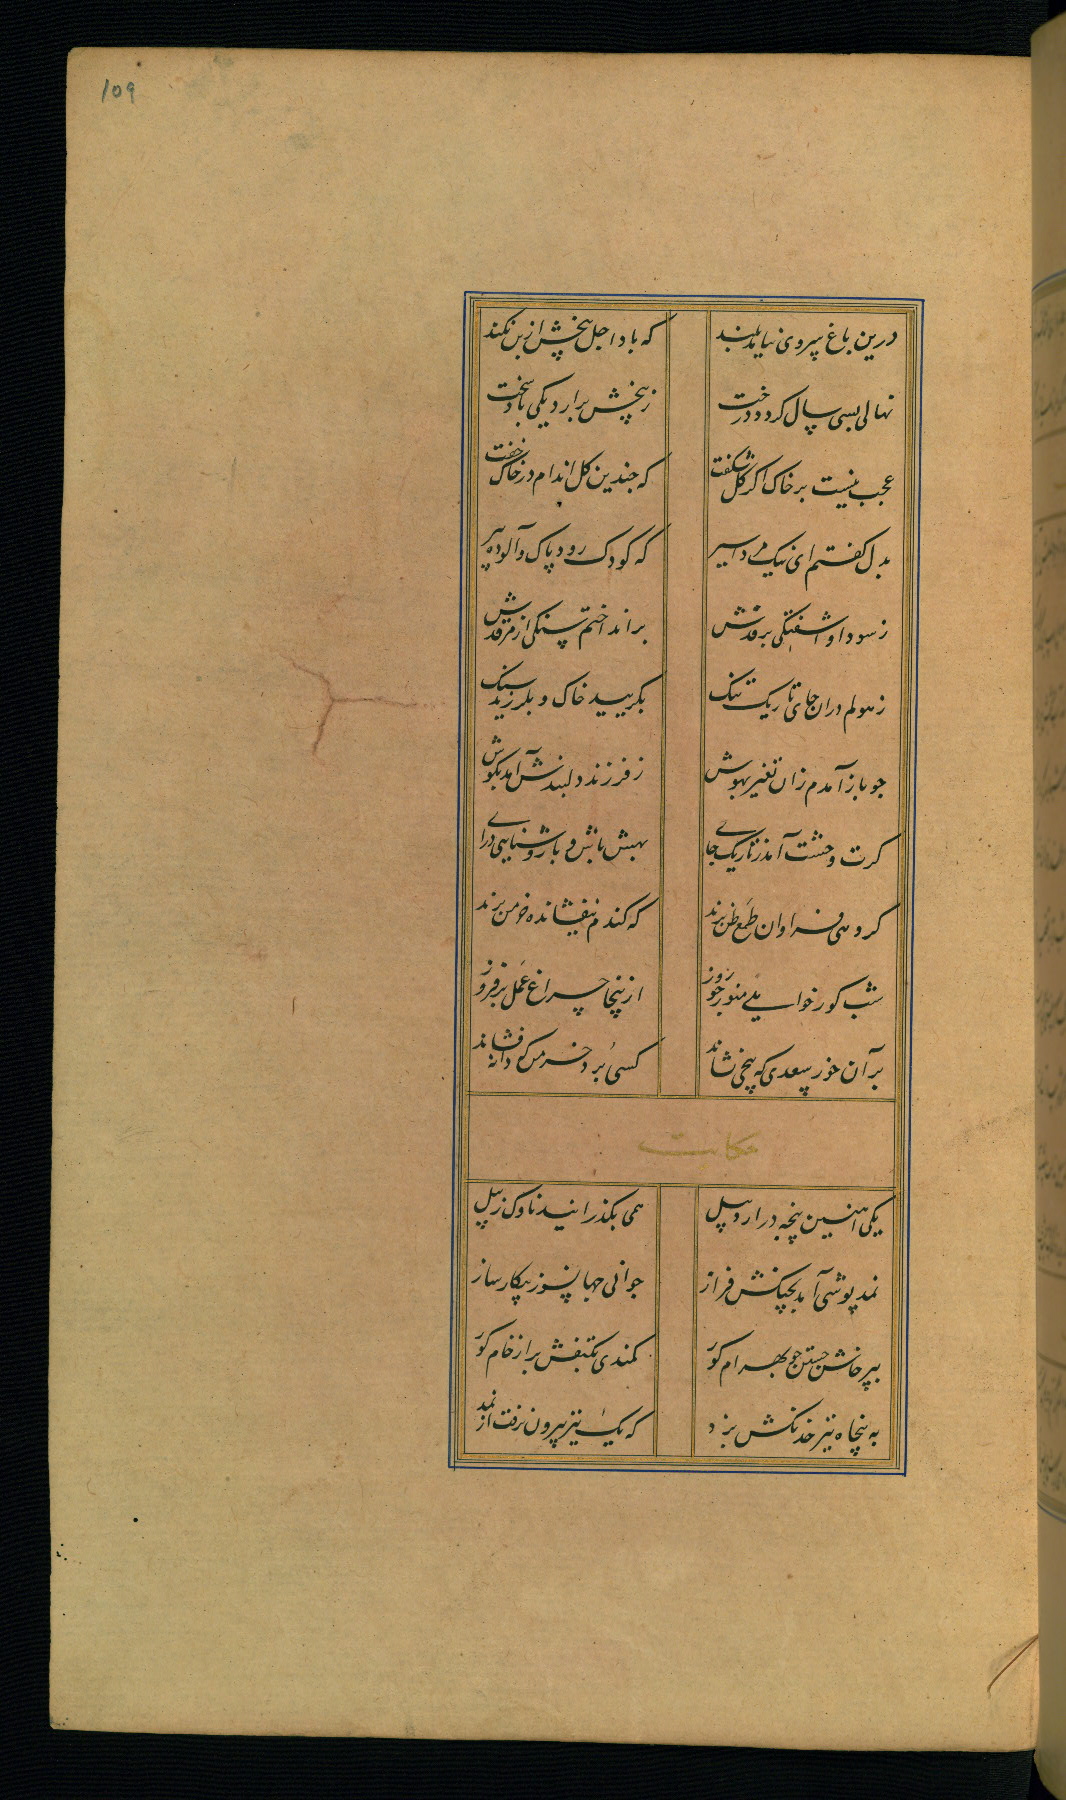 109
درین باغ سروی نیامد بلند که باد اجل بیخش از بن نکند
نهالی بسی سال کردد درخت ز بیخش برارد یکی باد سخت
عجب نیست بر خاک اکر کل شکفت که جندین کل اندام در خاک خفت
بدل کفتم ای نیک مرد اسیر که کودک رود پاک و آلوده پیر
ز سودا و اشفتکی بر قدش برانداختم سنکی از مرقدش
ز هولم دران جای تاریک تنک بکردید خاک و بلرزید سنک
جو باز آمدم زان تغیر بهوش ز فرزند دلبندش آمد بکوش
کرت وحشت آمد ز تاریک جای بهش باش و با روشنایی درای
شب کور خواهی منور جو روز ازینجا چراغ عمل برفروز
کروهی فراوان طمع ظن برند که کندم نیفشانده خرمن برند
بر آن خور سعدی که بیخی نشاند کسی برد خرمن که دانه فشاند
حکایت
یکی اهنین پنجه در اردبیل همی بکذرانید ناوک ز بیل
نمد پوشی آمد بجنکش فراز جوانی جهانسوز پیکار ساز
بپرخاش جستن جو بهرام کور کمندی بکتفش بر از خام کور
به پنجاه تیر خدنکش بزد که یک تیر بیرون نرفت از نمد